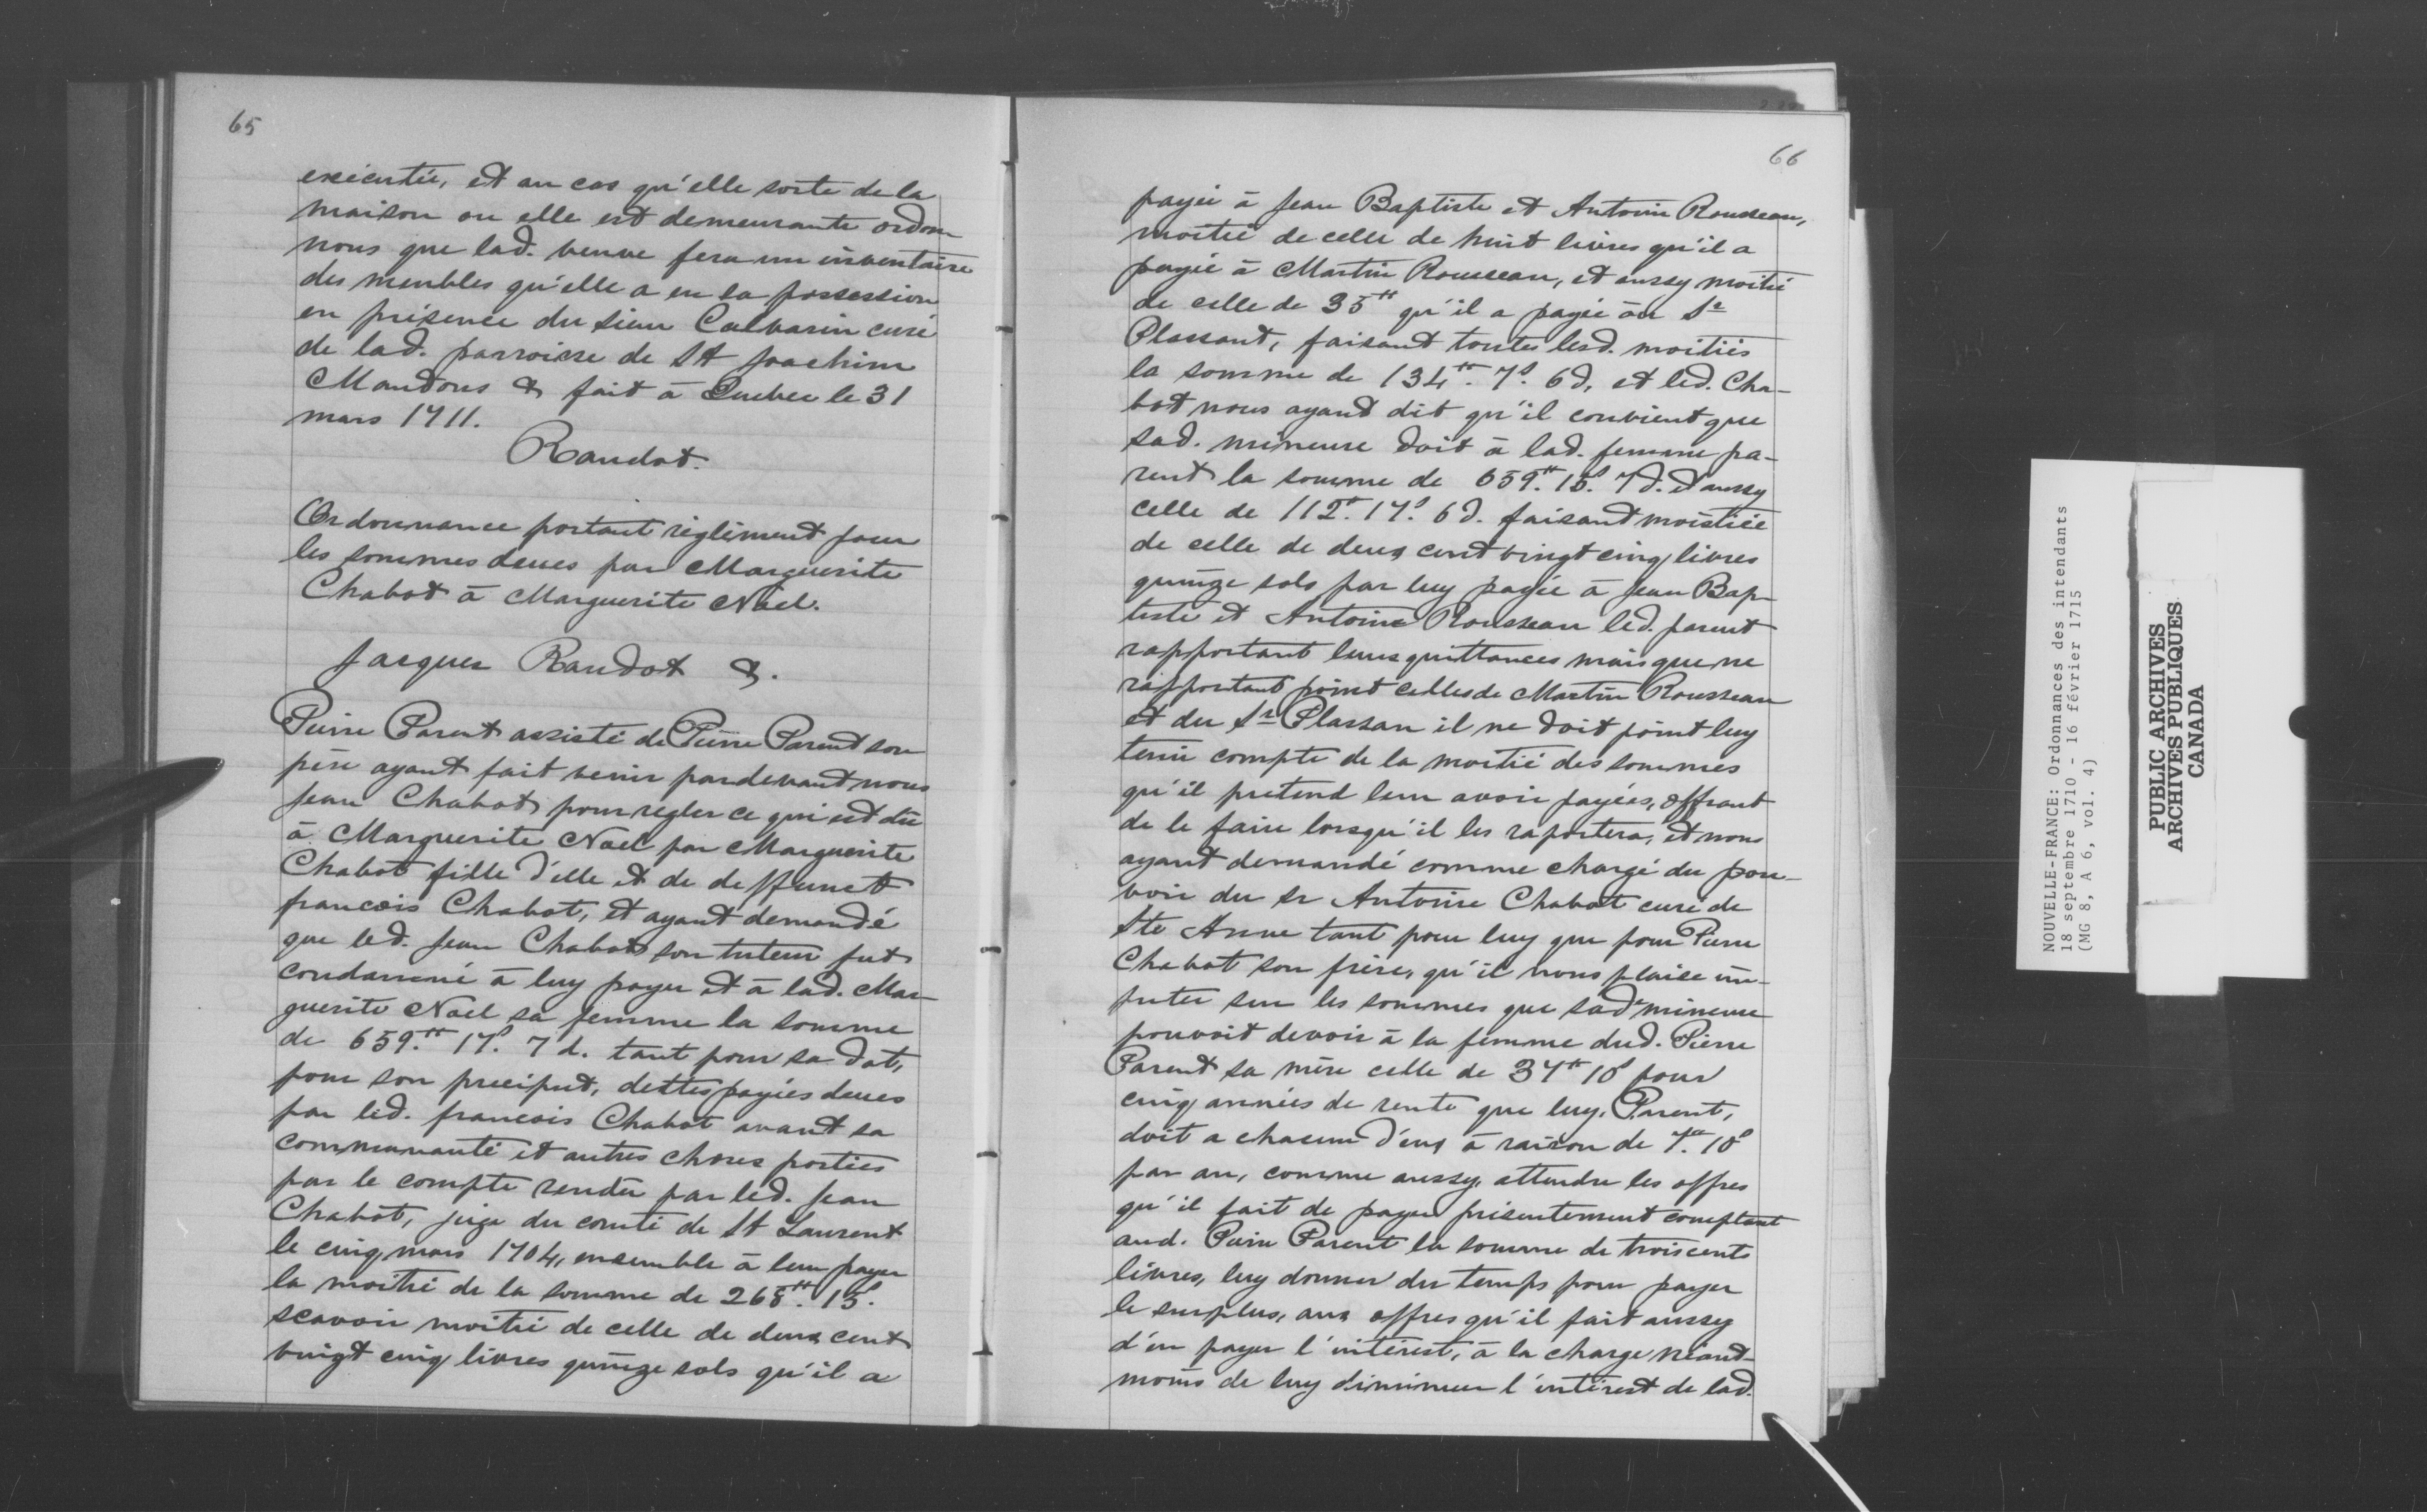 65
exécutée, et au cas qu'elle sorte de la
maison ou elle est demeurante ordon
nous que lad. veuve fera un inventaire
des meubles qu'elle a en sa possession
en présence du sieur Calvarin curé
de lad. parroisse de St Joachim
Mandons & fait à Quebec le 31
mars 1711.
Raudot.
Ordonnance portant règlement pour
les sommes deues par Marguerite
Chabot à Marguerite Noel.
Jacques Raudot &.
Pierre Parent assisté de Pierre Parent son
père ayant fait venir pardevant nous
Jean Chabot pour regler ce qui est dû
à Marguerite Noel par Marguerite
Chabot fille d'elle et de deffunct
francois Chabot, et ayant demandé
que led. Jean Chabot son tuteur fut
condamné à luy payer et à lad. Mar-
guerite Noel sa femme la somme
de 659.tt 17.s 7 d. tant pour sa dot,
pour son preciput, dettes payées deues
par led. francois Chabot avant sa
communauté et autres choses portées
par le compte rendu par led. Jean
Chabot, juge du comté de St Laurent
le cinq mars 1704, ensemble à leur payer
la moitié de la somme de 268.tt 15.s
scavoir moitié de celle de deux cent
vingt cinq livres quinze sols qu'il a
66
payée à Jean Baptiste et Antoine Rousseau,
moitié de celle de huit livres qu'il a
payée à Martin Rousseau, et aussy moitié
de celle de 35tt qu'il a payée au Sr
Plassant, faisant toutes lesd. moitiés
la somme de 134tt. 7s. 6d, et led. Cha-
bot nous ayant dit qu'il convient que
sad. mineure doit à lad. femme pa-
rent la somme de 659.tt 15.s 7d. et aussy
celle de 112.tt 17.s 6d. faisant moistiée
de celle de deux cent vingt cinq livres
quinze sols par luy payée à Jean Bap-
tiste et Antoine Rousseau led. parent
rapportant leurs quittances mais que ne
rapportant point celles de Martin Rousseau
et du Sr Plassan il ne doit point luy
tenir compte de la moitié des sommes
qu'il pretend leur avoir payées, offrant
de le faire lorsqu'il les raportera, et nous
ayant demandé comme chargé du pou-
voir du sr Antoine Chabot curé de
Ste Anne tant pour luy que pour Pierre
Chabot son frère, qu'il nous plaise im-
puter sur les sommes que sad. mineure
pouvoit devoir à la femme dud. Pierre
Parent sa mère celle de 37tt 10s pour
cinq années de rente que luy, Parent,
doit a chacun d'eux à raison de 7.tt 10s
par an, comme aussy, attendu les offres
qu'il fait de payer présentement comptant
aud. Pierre Parent la somme de trois cents
livres, luy donner du temps pour payer
le surplus, aux offres qu'il fait aussy
d'en payer l'intérest, à la charge néant-
moins de luy diminuer l'intérest de lad.
NOUVELLE-FRANCE: Ordonnances des intendants
18 septembre 1710 - 16 février 1715
(MG 8, A 6, vol. 4)
PUBLIC ARCHIVES
ARCHIVES PUBLIQUES
CANADA